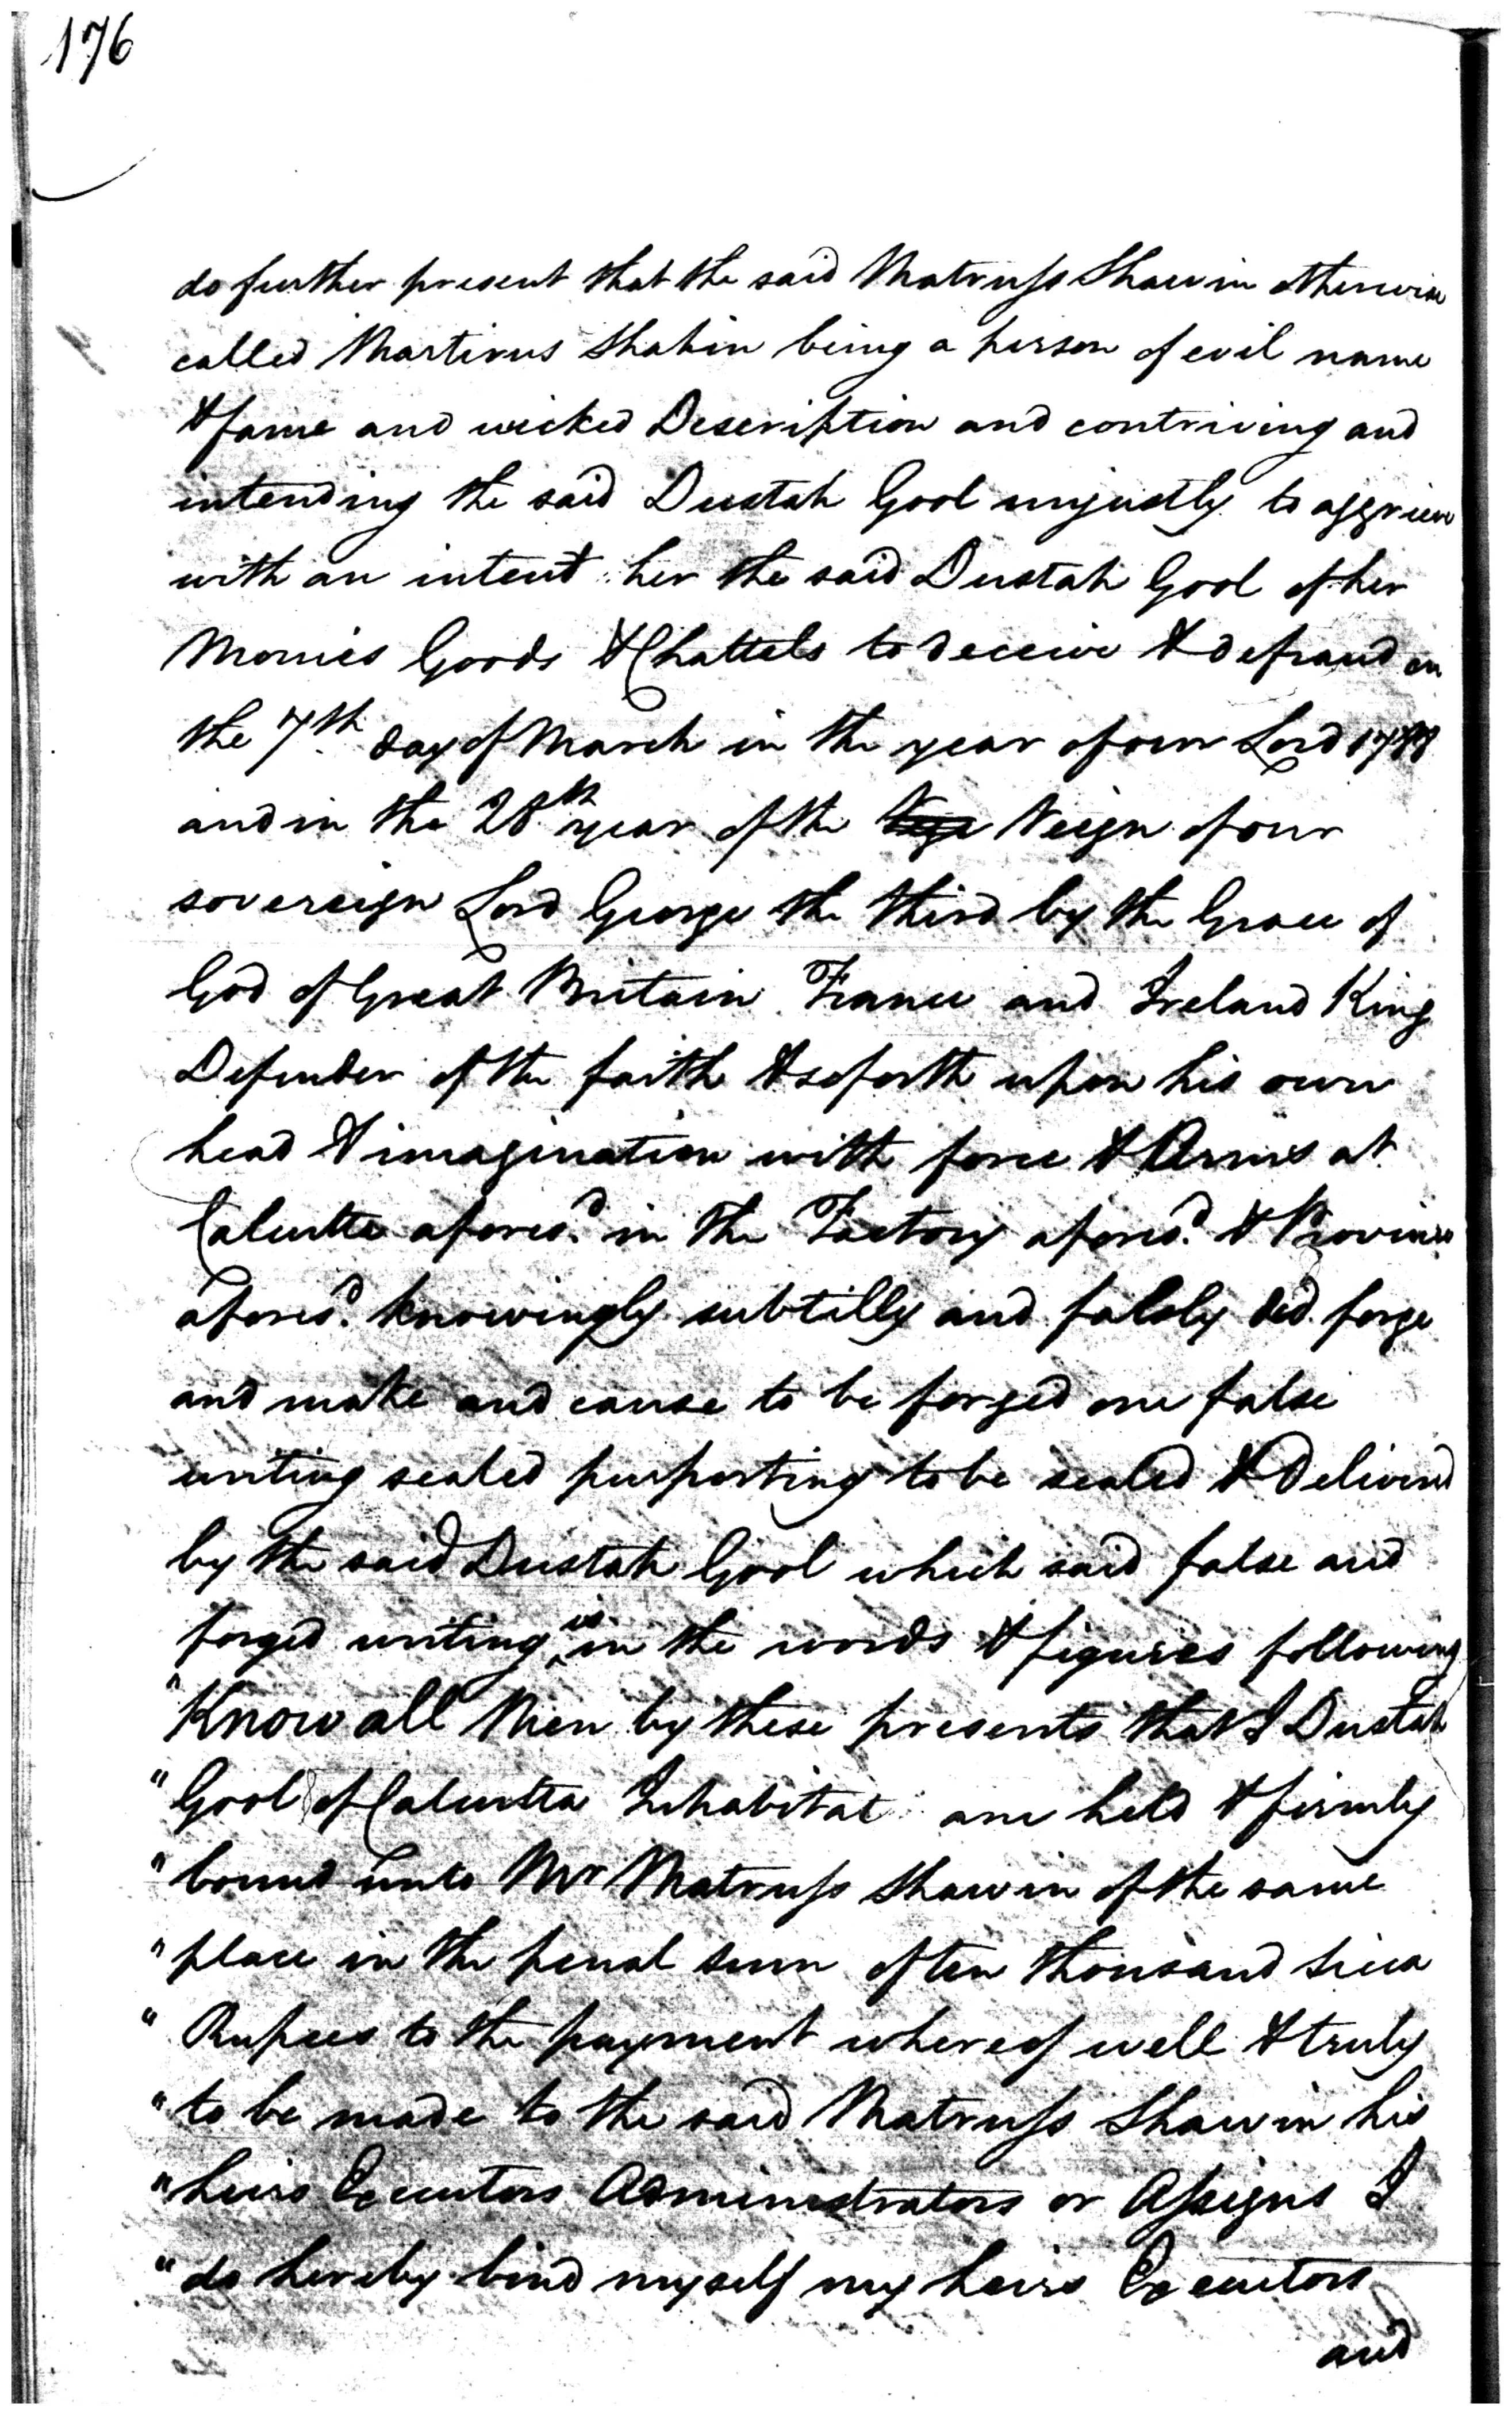 176
do further present that the said Matruss Shawin otherwise
called Martirus Shakin being a person of evil name
& fame and wicked Description and contriving and
intending the said Dustah Gool unjustly to aggrieve
with an intent her the said Dustah Gool of her
Monies Goods & Chattels to deceive & defraud on
the 7th day of March in the year of our Lord 1788
and in the 28th year of the Reign of our
sovereign Lord George the third by the Grace of
God of Great Britain France and Ireland King
Defender of the faith & soforth upon his own
head & imagination with force & Arms at
Calcutta afores.d in the Factory afores.d & Province
afores.d knowingly subtilly and falsly did forge
and make and cause to be forged one false
writing sealed purporting to be sealed & Deliverd
by the said Dustah Gool which said false and
forged writing is in the words & figures following
"Know all Men by these presents that I Dustah
"Gool of Calcutta Inhabitat am held & firmly
"bound unto Mr Matruss Shawin of the same
"place in the penal sum of ten thousand sicca
"Rupees to the payment whereof well & truly
"to be made to the said Matruss Shawin his
"heirs Executors Administrators or Assigns I
"do hereby bind myself my heirs Executors
and